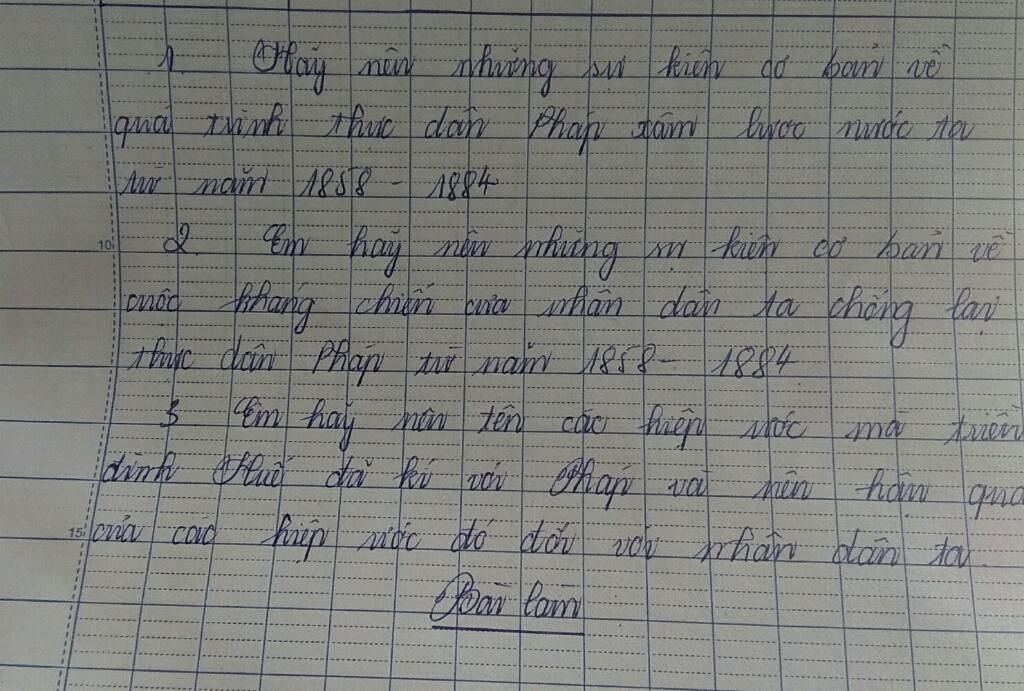 1. Hãy nên những sự kiện cơ bản về
quá trình thực dân Pháp xâm lược nước ta
từ năm 1858 - 1884
10 2. Em hãy nên những sự kiện cơ bản về
cuộc kháng chiến của nhân dân ta chống lại
thực dân Pháp từ năm 1858 - 1884
3 Em hãy nên tên các hiệp ước mà triền
đình Huế đã kí với Pháp và nên hậu quả
15 của các hiệp ước đó đối với nhân dân ta.
Bài làm